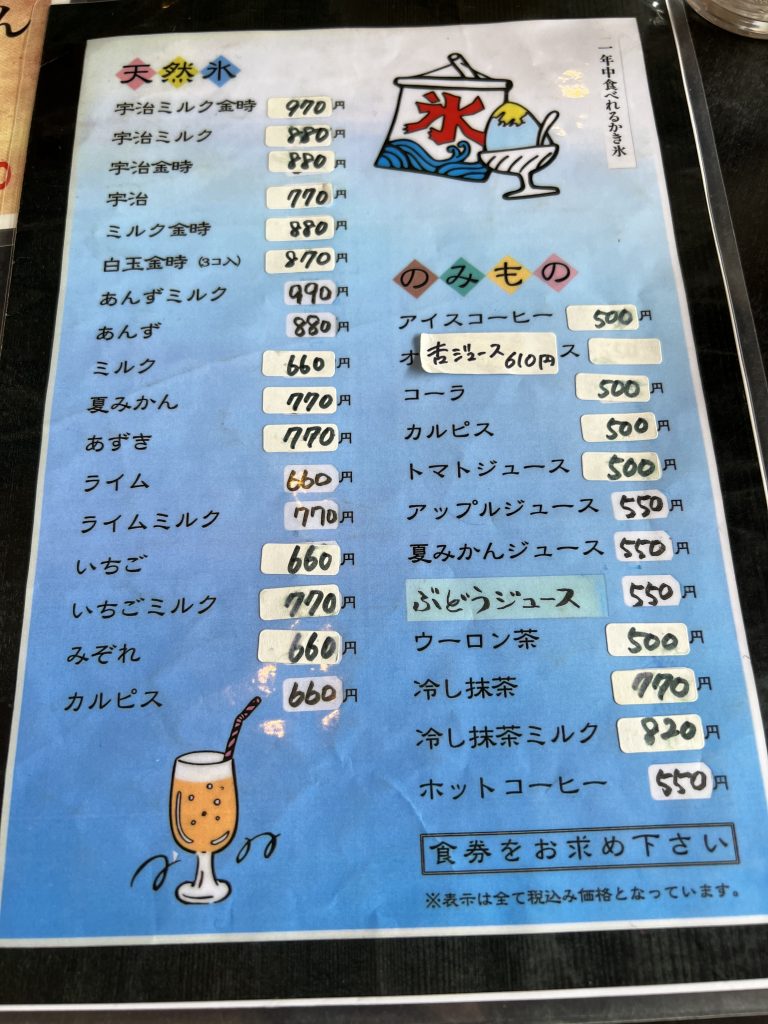 天然氷
宇治ミルク金時 970円
宇治ミルク 880円
宇治金時 880円
宇治 770円
ミルク金時 880円
白玉金時(3コ入) 870円
あんずミルク 990円
あんず 880円
ミルク 660円
夏みかん 770円
あずき 770円
ライム 660円
ライムミルク 770円
いちご 660円
いちごミルク 770円
みぞれ 660円
カルピス 660円
一年中食べれるかき氷
氷
のみもの
アイスコーヒー 500円
杏ジュース 610円
コーラ 500円
カルピス 500円
トマトジュース 500円
アップルジュース 550円
夏みかんジュース 550円
ぶどうジュース 550円
ウーロン茶 500円
冷し抹茶 770円
冷し抹茶ミルク 820円
ホットコーヒー 550円
食券をお求め下さい
※表示は全て税込み価格となっています。